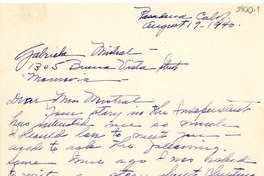 3900-1
Pasadena Calif
August 19. 1940.
Gabriela Mistral
1305 Buena Vista Street
Monrovia
Dear Miss Mistral
Your story in the Independent
has interested me so much
I should love to meet you
and to ask the following.
Some time ago I was asked
to write a story about